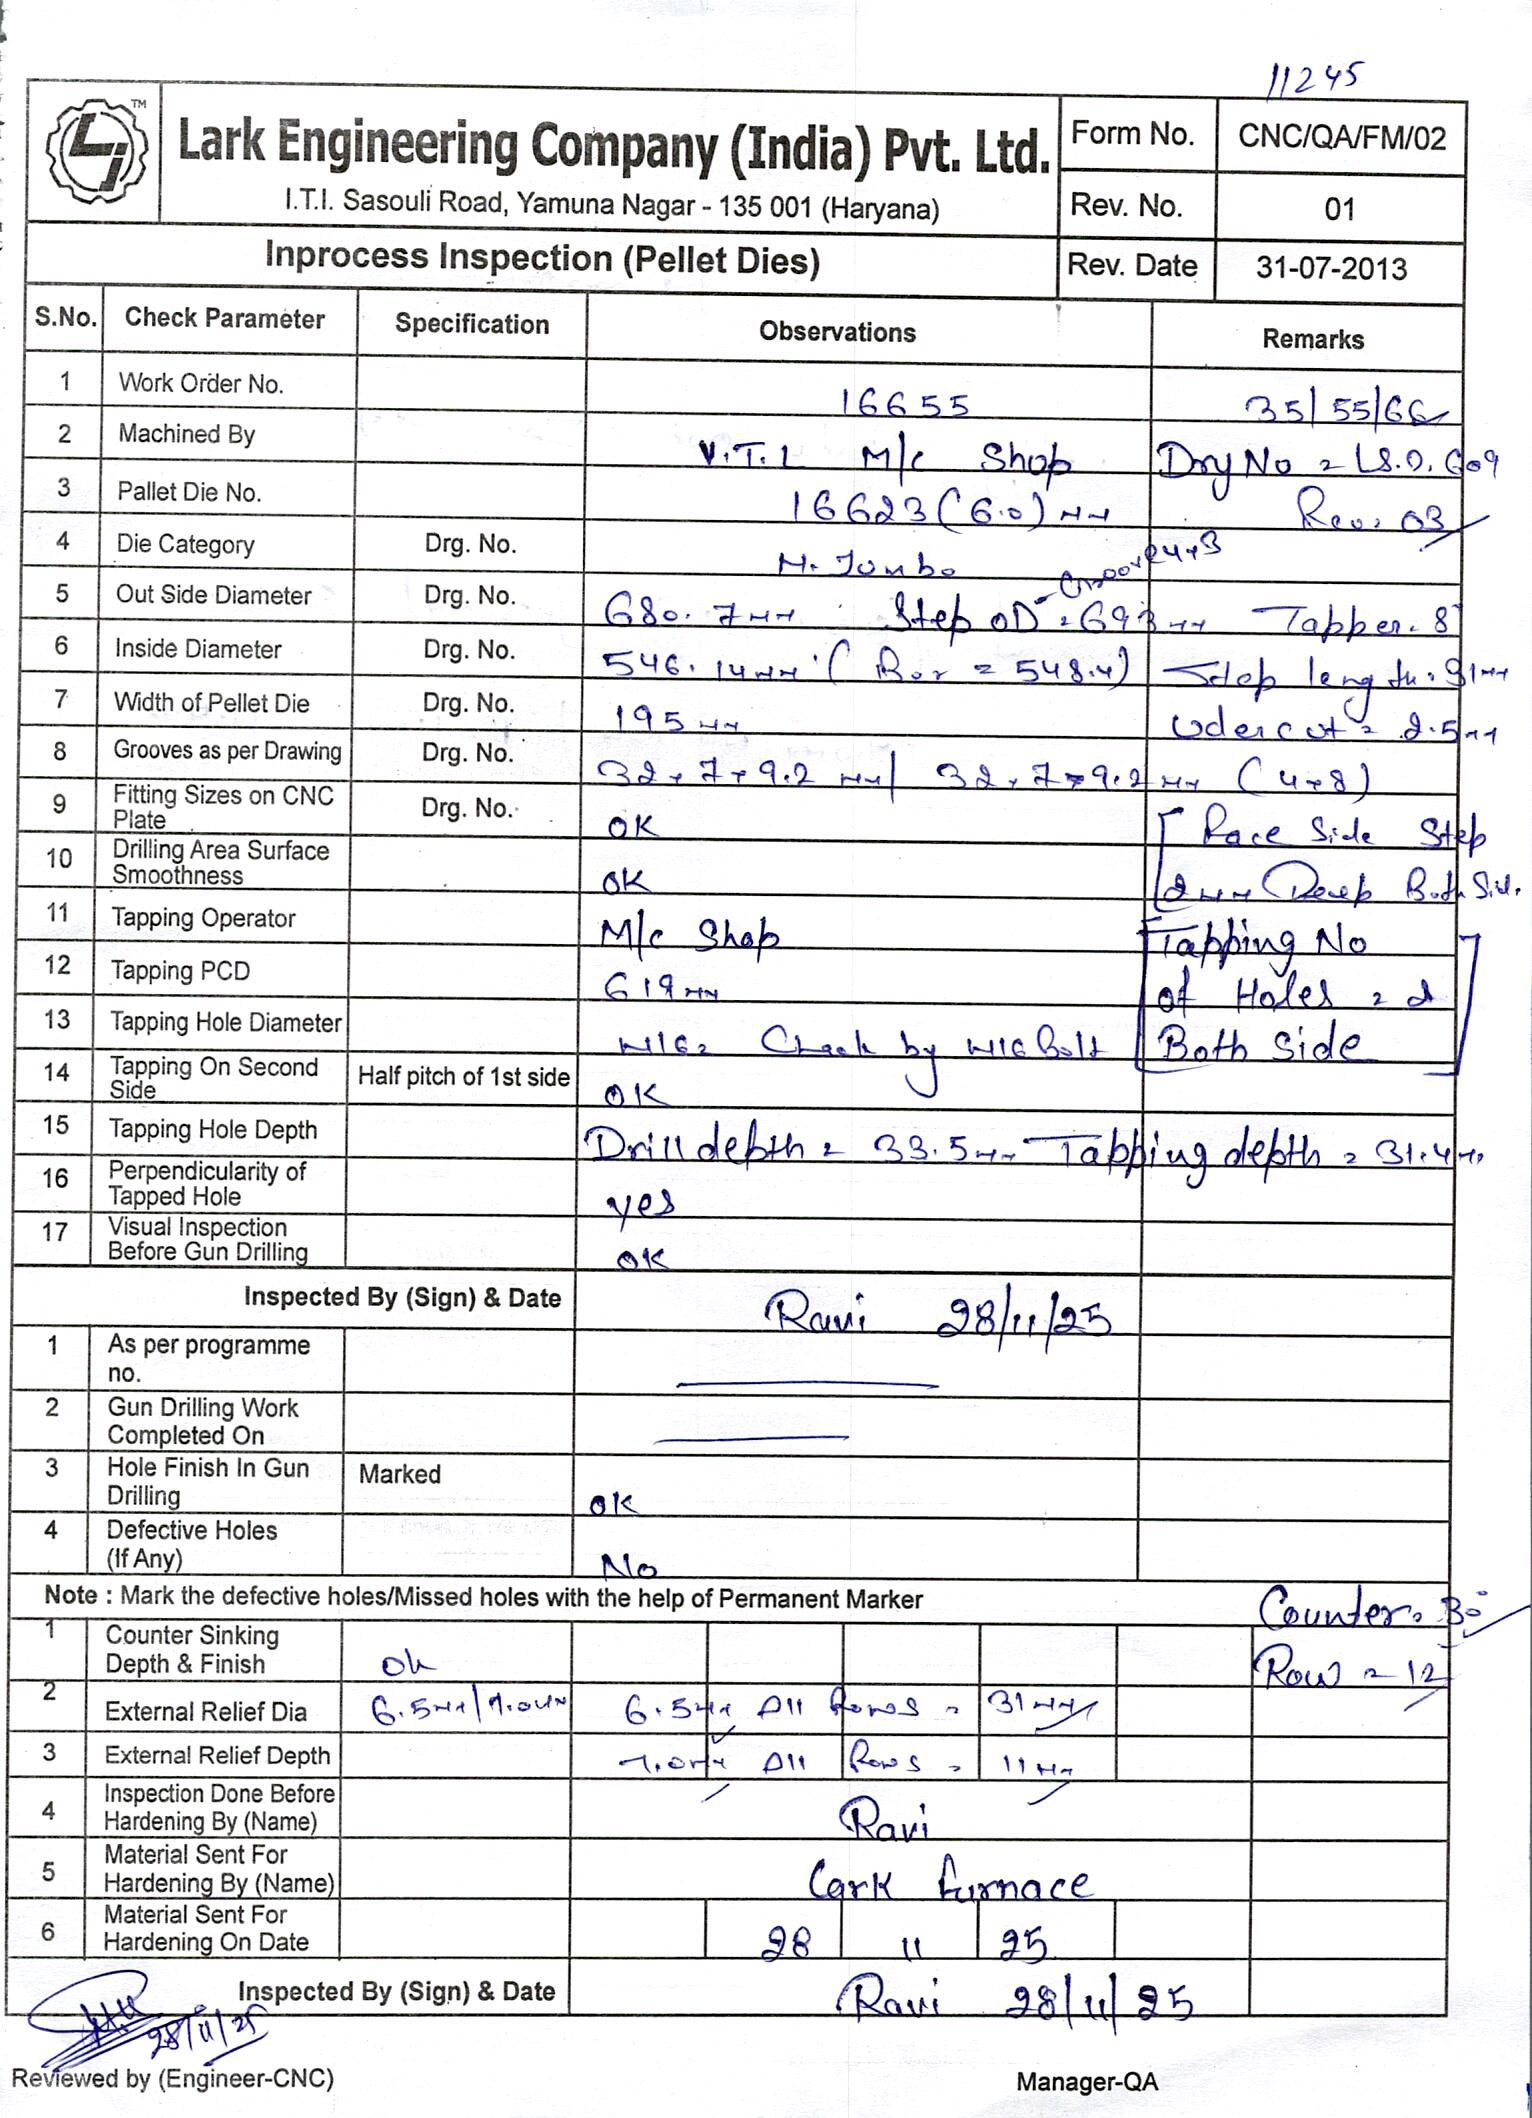 11245
TM
Lark Engineering Company (India) Pvt. Ltd.
I.T.I. Sasouli Road, Yamuna Nagar - 135 001 (Haryana)
Form No. CNC/QA/FM/02
Rev. No. 01
Inprocess Inspection (Pellet Dies)
Rev. Date 31-07-2013
S.No. Check Parameter Specification Observations Remarks
1 Work Order No. 16655 35/55/66
2 Machined By V.T.L M/c Shop Drg No = LS.D. G09
3 Pallet Die No. 16623 (6.0) mm Rev. 03
4 Die Category Drg. No. H. Jumbo Groove 4x3
5 Out Side Diameter Drg. No. 680.7mm Step OD = 693mm Tapper. 8
6 Inside Diameter Drg. No. 546.14mm (Bor = 548.4) Step length = 91mm
7 Width of Pellet Die Drg. No. 195mm Udercut = 2.5mm
8 Grooves as per Drawing Drg. No. 32x7x9.2mm/ 32x7x9.2mm (4x8)
9 Fitting Sizes on CNC Plate Drg. No. OK Race Side Step
10 Drilling Area Surface Smoothness OK 2mm Deep Both Sid.
11 Tapping Operator M/c Shop Tapping No
12 Tapping PCD 619mm of Holes = 2
13 Tapping Hole Diameter M16= Check by M16 Bolt Both Side
14 Tapping On Second Side Half pitch of 1st side OK
15 Tapping Hole Depth Drill depth = 33.5mm Tapping depth = 31.4mm
16 Perpendicularity of Tapped Hole yes
17 Visual Inspection Before Gun Drilling OK
Inspected By (Sign) & Date Ravi 28/11/25
1 As per programme no.
2 Gun Drilling Work Completed On
3 Hole Finish In Gun Drilling Marked OK
4 Defective Holes (If Any) No
Note : Mark the defective holes/Missed holes with the help of Permanent Marker Counter = 30
1 Counter Sinking Depth & Finish Ok Row = 12
2 External Relief Dia 6.5mm/7.0mm 6.5mm All Rows = 31mm
3 External Relief Depth 7.0mm All Rows = 11mm
4 Inspection Done Before Hardening By (Name) Ravi
5 Material Sent For Hardening By (Name) Lark furnace
6 Material Sent For Hardening On Date 28 11 25
Inspected By (Sign) & Date Ravi 28/11/25
28/11/25
Reviewed by (Engineer-CNC) Manager-QA